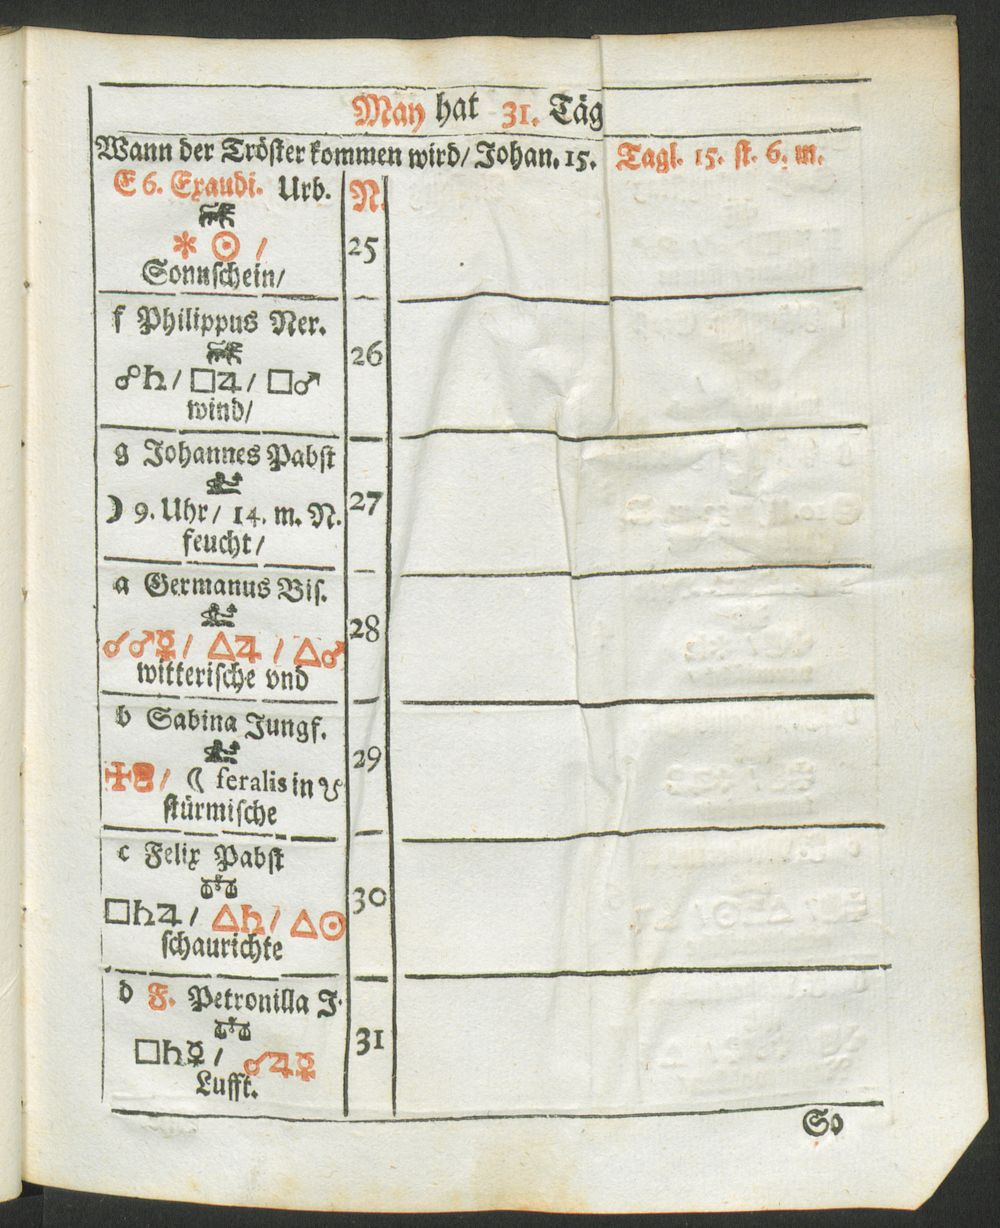 May hat 31. Täg
Wann der Tröster kommen wird/ Johan. 15. Tagl. 15. st. 6. m.
E 6. Exaudi. Urb. N.
25
⚹ ☉ /
Sonnschein/
f Philippus Ner.
26
☍♄/ □♃/ □♂
wind/
g Johannes Pabst
27
☽ 9. Uhr/ 14. m. N.
feucht/
a Germanus Bis.
28
☌♂☿/ △♃/ △♂
witterische vnd
b Sabina Jungf.
29
☾ feralis in ♉
stürmische
c Felix Pabst
30
□♄♃/ △♄/ △☉
schaurichte
d F. Petronilla J.
31
□♄☿/ ☌♃☿
Lufft.
So